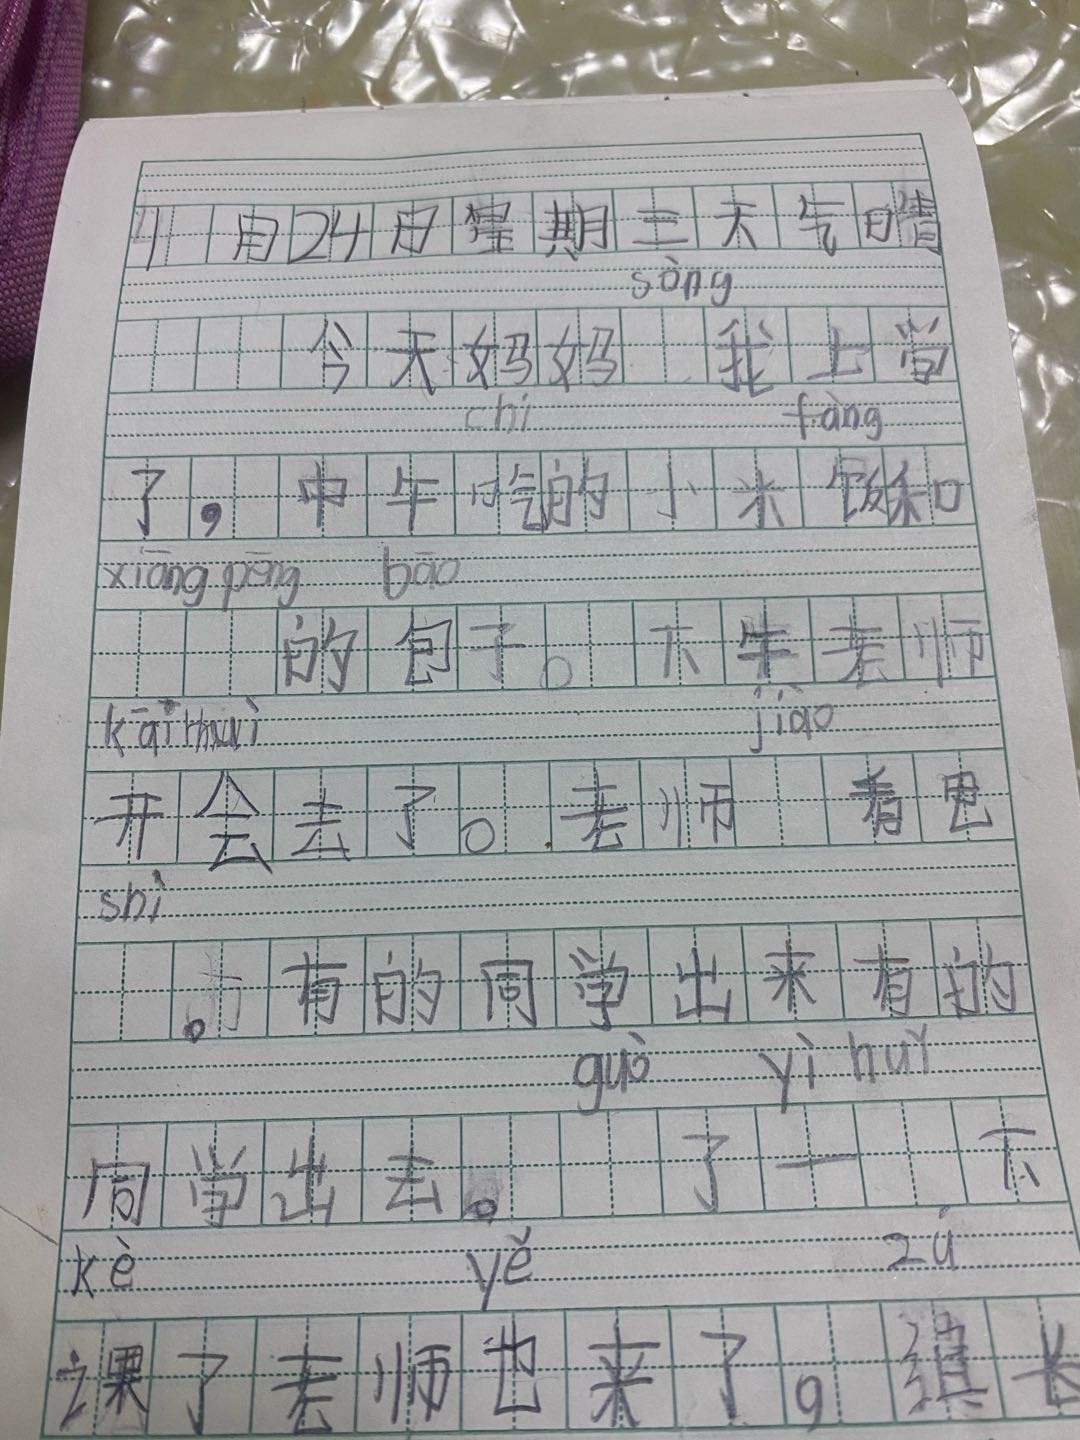 4月24日星期三天气晴
sòng
今天妈妈 我上学
chi fàng
了,中午吃的小米饭和
xiāng pēng bāo
的包子。下牛老师
kāi huì jiào
开会去了。老师 看电
shì
。有的同学出来有的
guò yì huǐ
同学出去。 了一 下
kè yě zú
课了老师也来了,组长